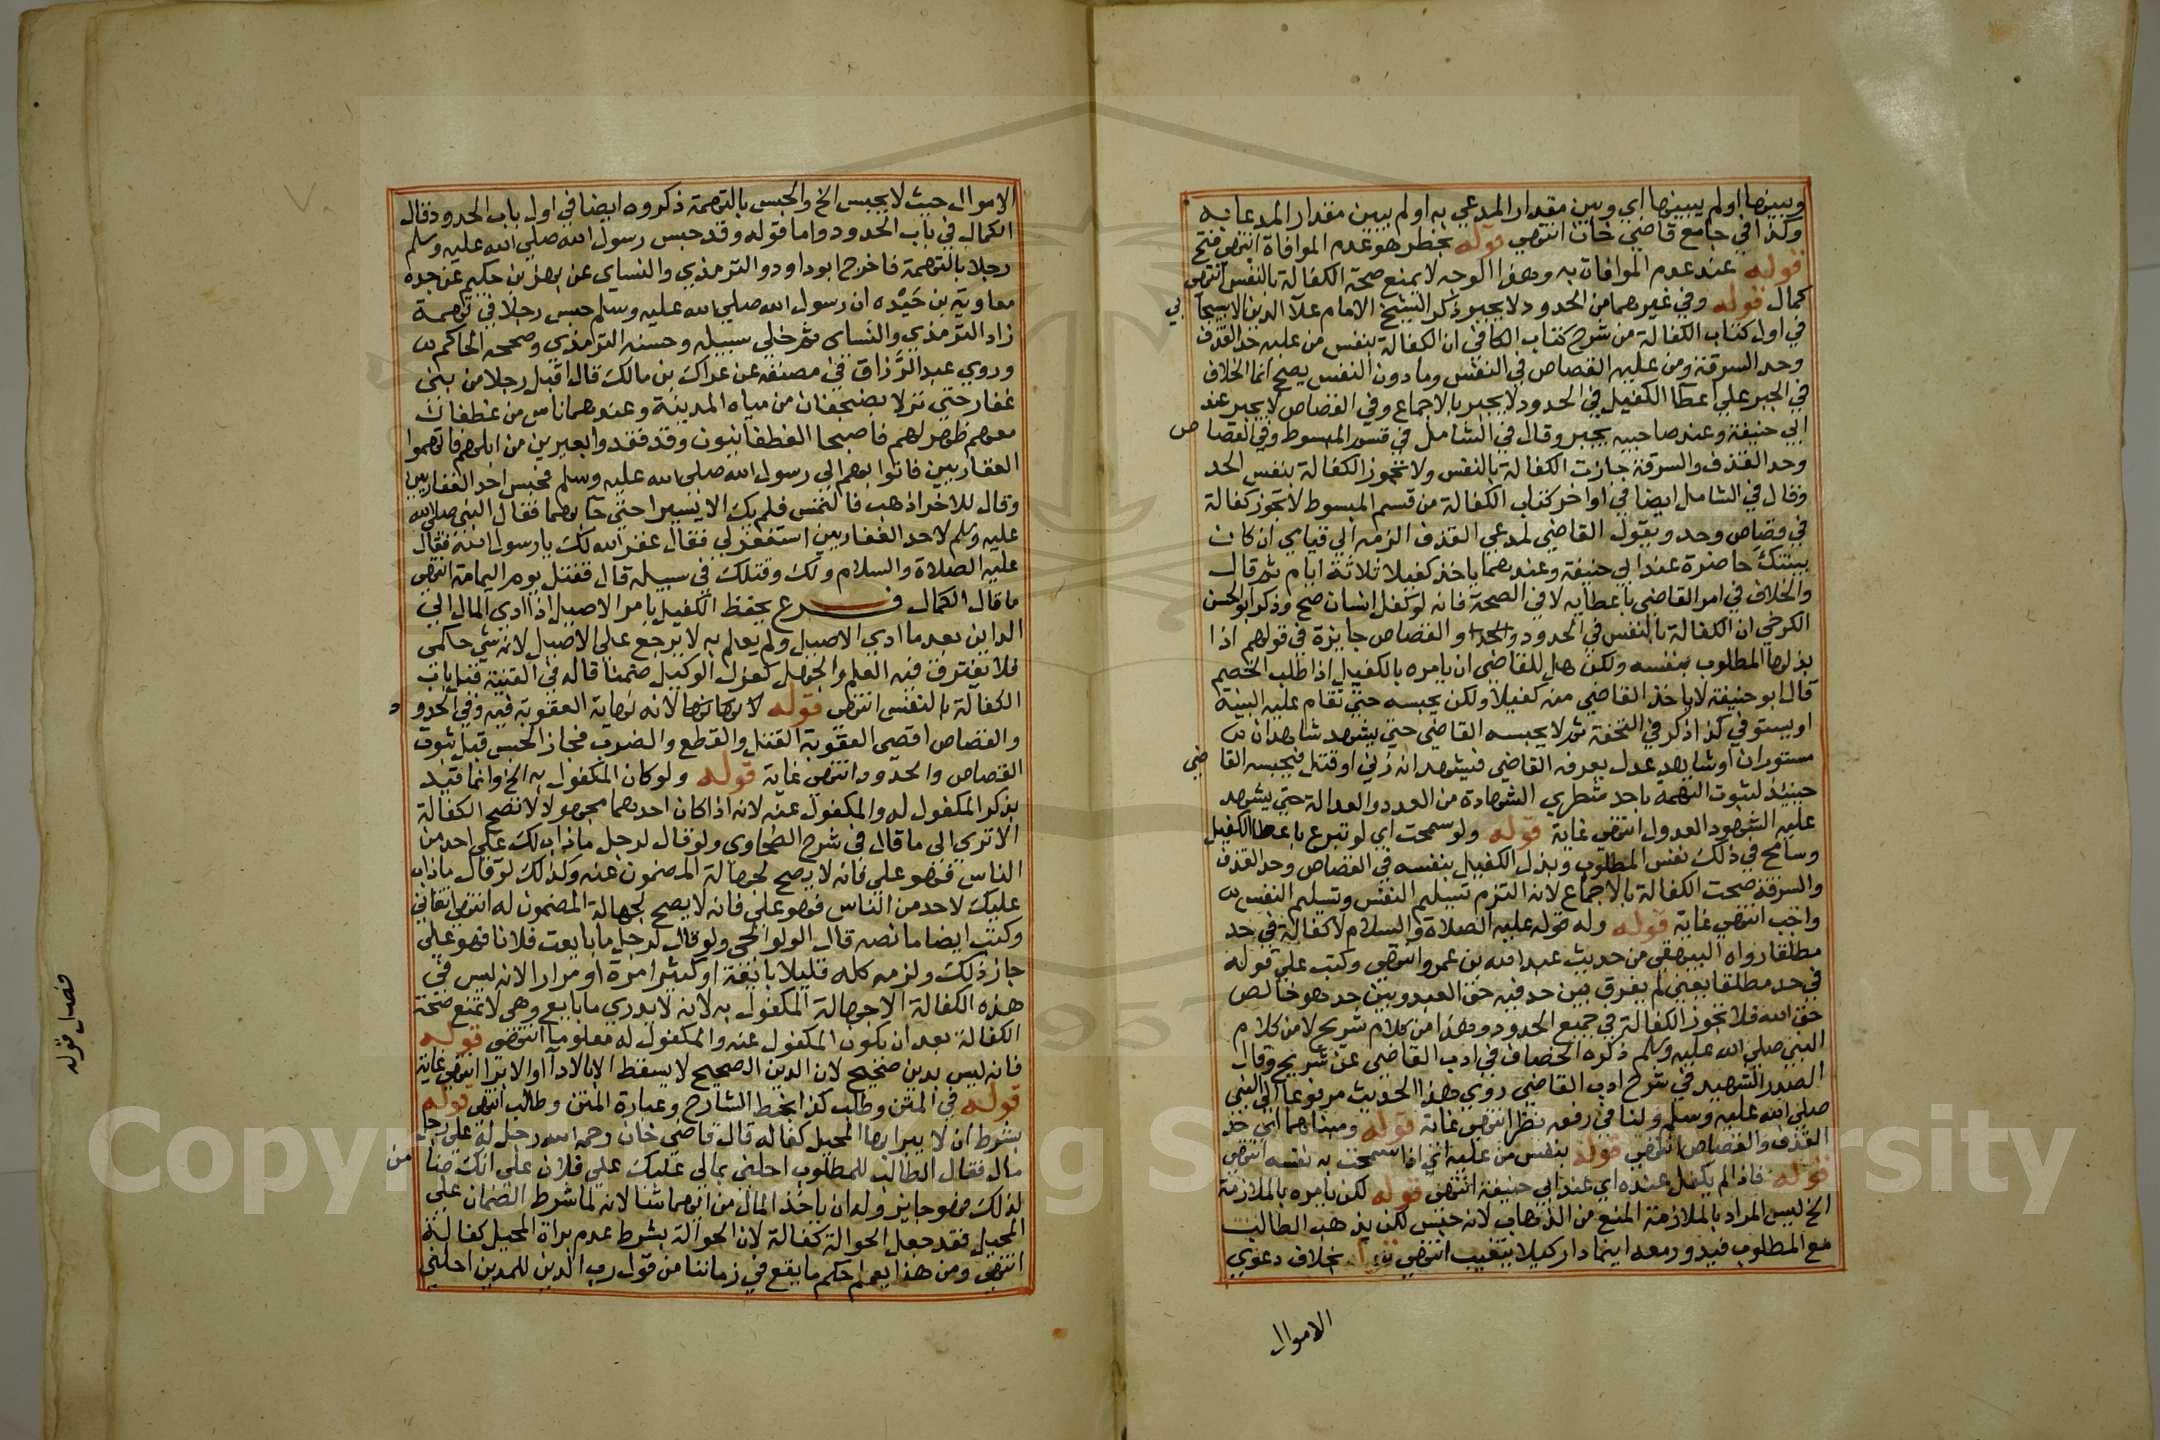 وبينها اولم يبينها اي وبين مقدار المدعي به اولم يبين مقدار المدعا به
وكذا في جامع قاضي خان انتهي قوله بخطر هو عدم الموافاة انتهي فتح
قوله عند عدم الموافات به وهذا الوجه لا يمنع صحة الكفالة بالنفس انتهي
كمال قوله وفي غيرهما من الحدود لا يجبر ذكر الشيخ الامام علآ الدين الاسبيجآبي
في اول كتاب الكفالة من شرح كتاب الكافي ان الكفالة بنفس من عليه حد القذف
وحد السرقة ومن عليه القصاص في النفس وما دون النفس يصح انما الخلاف
في الجبر علي اعطآ الكفيل في الحدود لا يجبر بالاجماع وفي القصاص لا يجبر عند
ابي حنيفة وعند صاحبيه يجبر وقال في الشامل في قسم المبسوط وفي القصاص
وحد القذف والسرقة جازت الكفالة بالنفس ولا تجوز الكفالة بنفس الحد
وقال في الشامل ايضا في اواخر كتاب الكفالة من قسم المبسوط لا تجوز كفالة
في قصاص وحد ويقول القاضي لمدعي القذف الزمه الي قيامي ان كان
بينتك حاضرة عند ابي حنيفة وعندهما ياخذ كفيلا ثلاثة ايام ثم قال
والخلاف في امر القاضي باعطآيه لا في الصحة فانه لو كفل انسان صح وذكر ابو الحسن
الكرخي ان الكفالة بالنفس في الحدود والقصاص جايزة في قولهم اذا
بذلها المطلوب بنفسه ولكن هل للقاضي ان يامره بالكفيل اذا طلب الخصم
قال ابو حنيفة لا ياخذ القاضي منه كفيلا ولكن يحبسه حتي تقام عليه البينة
او يستوفي كذا ذكر في التحفة ثم لا يحبسه القاضي حتي يشهد شاهدان
مستوران او شاهد عدل يعرفه القاضي فيشهد انه زني او قتل فيحبسه القاضي
حينئذ لثبوت التهمة باحد شطري الشهادة من العدد والعدالة حتي يشهد
عليه الشهود العدول انتهي غاية قوله ولو سمحت اي لو تبرع باعطا الكفيل
وسامح في ذلك نفس المطلوب وبذل الكفيل بنفسه في القصاص وحد القذف
والسرقة صحت الكفالة بالاجماع لانه التزم تسليم النفس وتسليم النفس
واجب انتهي غاية قوله وله قوله عليه الصلاة والسلام لا كفالة في حد
مطلقا رواه البيهقي من حديث عبد الله بن عمرو انتهي وكتب علي قوله
في حد مطلقا يعني لم يفرق بين حد فيه حق العبد وبين حد هو خالص
حق الله فلا تجوز الكفالة في جميع الحدود وهذا من كلام شريح لا من كلام
النبي صلي الله عليه وسلم ذكره الخصاف في ادب القاضي عن شريح وقال
الصدر الشهيد في شرح ادب القاضي روي هذا الحديث مرفوعا الي النبي
صلي الله عليه وسلم ولنا في رفعه نظر انتهي غاية قوله ومبناهما اي حد
القذف والقصاص انتهي قوله بنفس من عليه اي اذا سمحت به نفسه انتهي
قوله فاذا لم يكفل عنده اي عند ابي حنيفة انتهي قوله لكن يامره بالملازمة
الخ ليس المراد بالملازمة المنع من الذهاب لانه حبس لكن يذهب الطالب
مع المطلوب فيدور معه اينما دار كيلا يتغيب انتهي بخلاف دعوي
الاموال
الاموال حيث لا يحبس الخ والحبس بالتهمة ذكروه ايضا في اول باب الحدود قال
الكمال في باب الحدود واما قوله وقد حبس رسول الله صلي الله عليه وسلم
رجلا بالتهمة فاخرج ابو داود والترمذي والنساي عن بهز بن حكيم عن جده
معاوية بن حَيْده ان رسول الله صلي الله عليه وسلم حبس رجلا في تهمة
زاد الترمذي والنساي ثم خلي سبيله وحسنه الترمذي وصححه الحاكم
وروي عبد الرَّزاق في مصنفه عن عراك بن مالك قال اقبل رجلا من بني
غفار حتي نزلا بضجنان من مياه المدينة وعندهما ناس من غطفان
معهم ظهر لهم فاصبحا الغطفانيون وقد فقدوا بعيرين من ابلهم فاتهموا
الغفاريين فاتوا بهم الي رسول الله صلي الله عليه وسلم فحبس احد الغفاريين
وقال للاخر اذهب فالتمس فلم يك الا يسيرا حتي جآ بهما فقال النبي صلي الله
عليه وسلم لاحد الغفاريين استغفر لي فقال غفر الله لك يا رسول الله فقال
عليه الصلاة والسلام ولك وقتلك في سبيله قال فقتل يوم اليمامة انتهي
ما قال الكمال فرع يحفظ الكفيل بامر الاصيل اذا ادي المال الي
الداين بعد ما ادي الاصيل ولم يعلم به لا يرجع علي الاصيل لانه شي حكمي
فلا يفترق فيه العلم والجهل كعزل الوكيل ضمنا قاله في القنية قبل باب
الكفالة بالنفس انتهي قوله لانها نهاية العقوبة فيه وفي الحدود
والقصاص اقصي العقوبة القتل والقطع والضرب فجاز الحبس قبل ثبوت
القصاص والحدود انتهي غاية قوله ولو كان المكفول به الخ وانما قيد
بذكر المكفول له والمكفول عنه لانه اذا كان احدهما مجهولا لا تصح الكفالة
الا تري الي ما قال في شرح الطحاوي ولو قال لرجل ماذاب لك علي احد من
الناس فهو علي فانه لا يصح لجهالة المضمون عنه وكذلك لو قال ماذاب
عليك لاحد من الناس فهو علي فانه لا يصح لجهالة المضمون له انتهي اتقاني
وكتب ايضا ما نصه قال الولوالجي ولو قال لرجل ما بايعت فلانا فهو علي
جاز ذلك ولزمه كله قليلا بايعه او كثيرا مرة او مرارا لانه ليس في
هذه الكفالة الا جهالة المكفول به لانه لا يدري ما بايع وهي لا تمنع صحة
الكفالة بعد ان يكون المكفول عنه والمكفول له معلوما انتهي قوله
فانه ليس بدين صحيح لان الدين الصحيح لا يسقط الا بالادآ او الابرا انتهي غاية
قوله في المتن وطلب كذا بخط الشارح وعبارة المتن وطالب انتهي قوله
بشرط ان لا يبرا بها المحيل كفاله قال قاضي خان رحمه الله رجل له علي رجل
مال فقال الطالب للمطلوب احلني بمالي عليك علي فلان علي انك ضامن
لذلك فهو جايز وله ان ياخذ المال من ايهما شا لانه لما شرط الضمان علي
المحيل فقد جعل الحوالة كفالة لان الحوالة بشرط عدم براة المحيل كفالة
انتهي ومن هذا يعلم حكم ما يقع في زماننا من قول رب الدين للمدين احلني
فصل قوله
Copyright © King Saud University